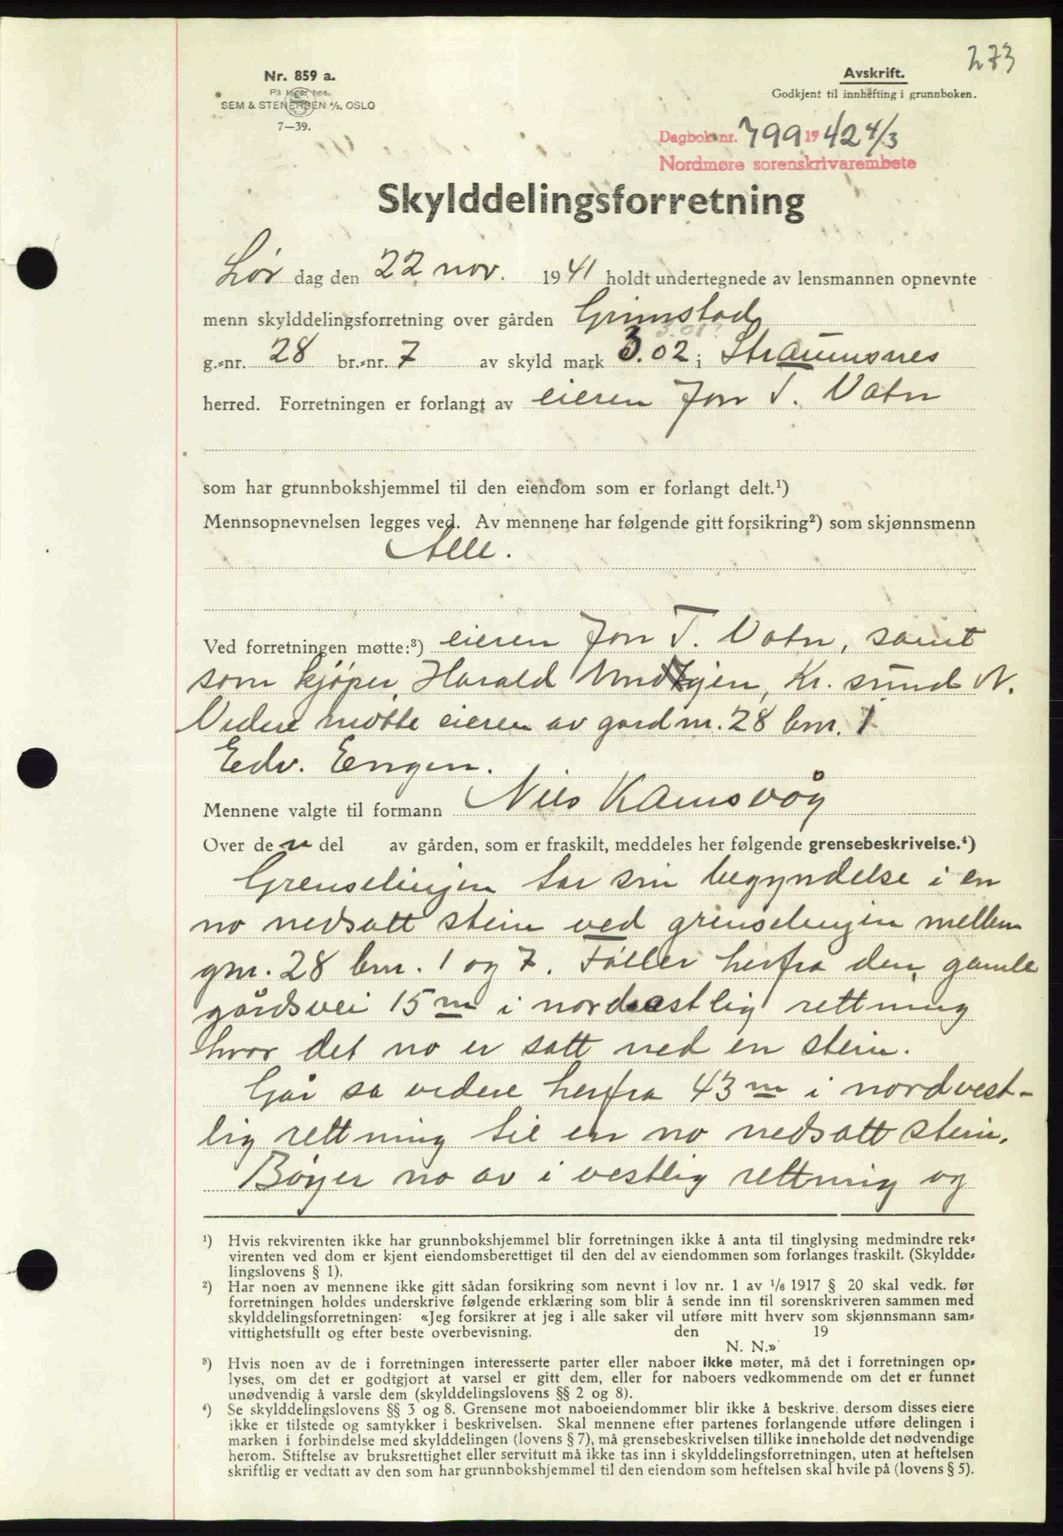 273
Nr. 859 a.
På lager hos:
SEM & STENERSEN A/S, OSLO
7—39.
Avskrift.
Godkjent til innhefting i grunnboken.
Dagbok nr. 799 1942 4/3
Nordmøre sorenskrivarembete
Skylddelingsforretning
Lør dag den 22. nov. 1941 holdt undertegnede av lensmannen opnevnte
menn skylddelingsforretning over gården Grimstad
g.-nr. 28 br.-nr. 7 av skyld mark 3.02 i Straumsnes
herred. Forretningen er forlangt av eieren Jon T. Vatn
som har grunnbokshjemmel til den eiendom som er forlangt delt.¹)
Mennsopnevnelsen legges ved. Av mennene har følgende gitt forsikring²) som skjønnsmenn
Alle.
Ved forretningen møtte:³) eieren Jon T. Vatn, samt
som kjøper, Harald Kr. sund N.
Videre møtte eieren av gard nr. 28 bnr. 1
Edv. Engen.
Mennene valgte til formann Nils Kamsvåg
Over den del av gården, som er fraskilt, meddeles her følgende grensebeskrivelse.⁴)
Grenselinjen tar sin begyndelse i en
no nedsatt stein ved grenselinjen mellem
gnr. 28 bnr. 1 og 7. Føller herfra den gamle
gårdsvei 15 m i nordvestlig rettning
hvor det no er satt ned en stein.
Går så videre herfra 43 m i nordvest-
lig rettning til en no nedsatt stein.
Bøyer no av i vestlig rettning og
¹) Hvis rekvirenten ikke har grunnbokshjemmel blir forretningen ikke å anta til tinglysing medmindre rek-
virenten ved dom er kjent eiendomsberettiget til den del av eiendommen som forlanges fraskilt. (Skyldde-
lingslovens § 1).
²) Har noen av mennene ikke gitt sådan forsikring som nevnt i lov nr. 1 av ¹/₆ 1917 § 20 skal vedk. før
forretningen holdes underskrive følgende erklæring som blir å sende inn til sorenskriveren sammen med
skylddelingsforretningen: «Jeg forsikrer at jeg i alle saker vil utføre mitt hverv som skjønnsmann sam-
vittighetsfullt og efter beste overbevisning. den 19
N. N.»
³) Hvis noen av de i forretningen interesserte parter eller naboer ikke møter, må det i forretningen op-
lyses, om det er godtgjort at varsel er gitt dem, eller for naboers vedkommende om det er funnet
unødvendig å varsle dem (skylddelingslovens §§ 2 og 8).
⁴) Se skylddelingslovens §§ 3 og 8. Grensene mot naboeiendommer blir ikke å beskrive, dersom disses eiere
ikke er tilstede og samtykker i beskrivelsen. Skal mennene efter partenes forlangende utføre delingen i
marken i forbindelse med skylddelingen (lovens § 7), må grensebeskrivelsen tillike inneholde det nødvendige
herom. Stiftelse av bruksrettighet eller servitutt må ikke tas inn i skylddelingsforretningen, uten at heftelsen
skriftlig er vedtatt av den som har grunnbokshjemmel til den eiendom som heftelsen skal hvile på (lovens § 5).